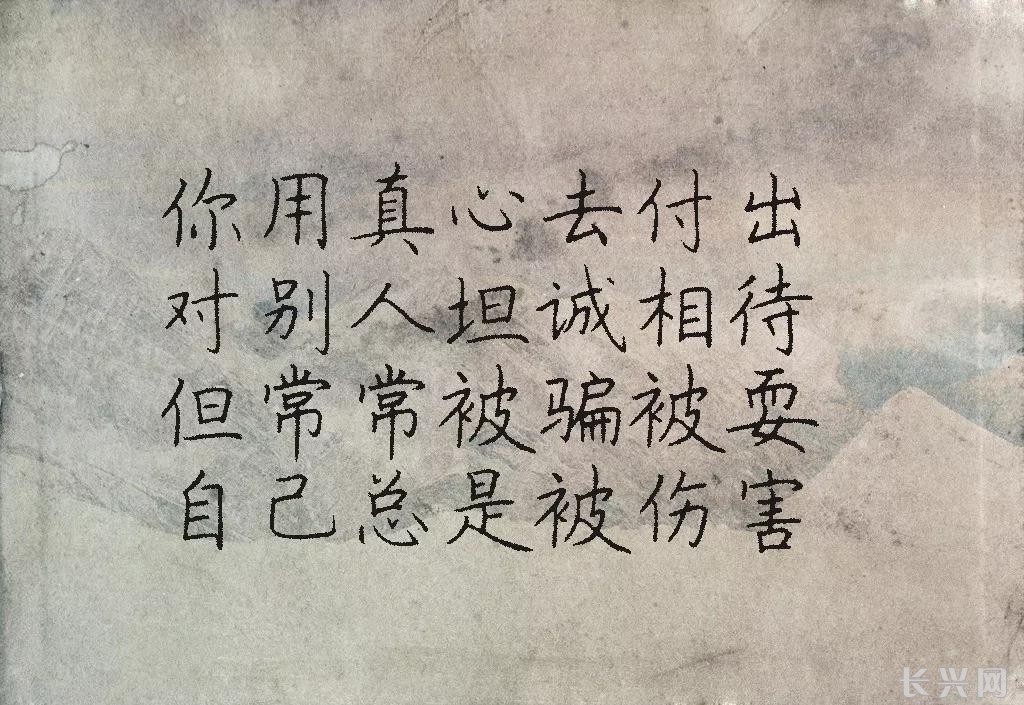 你用真心去付出
对别人坦诚相待
但常常被骗被耍
自己总是被伤害
长兴网